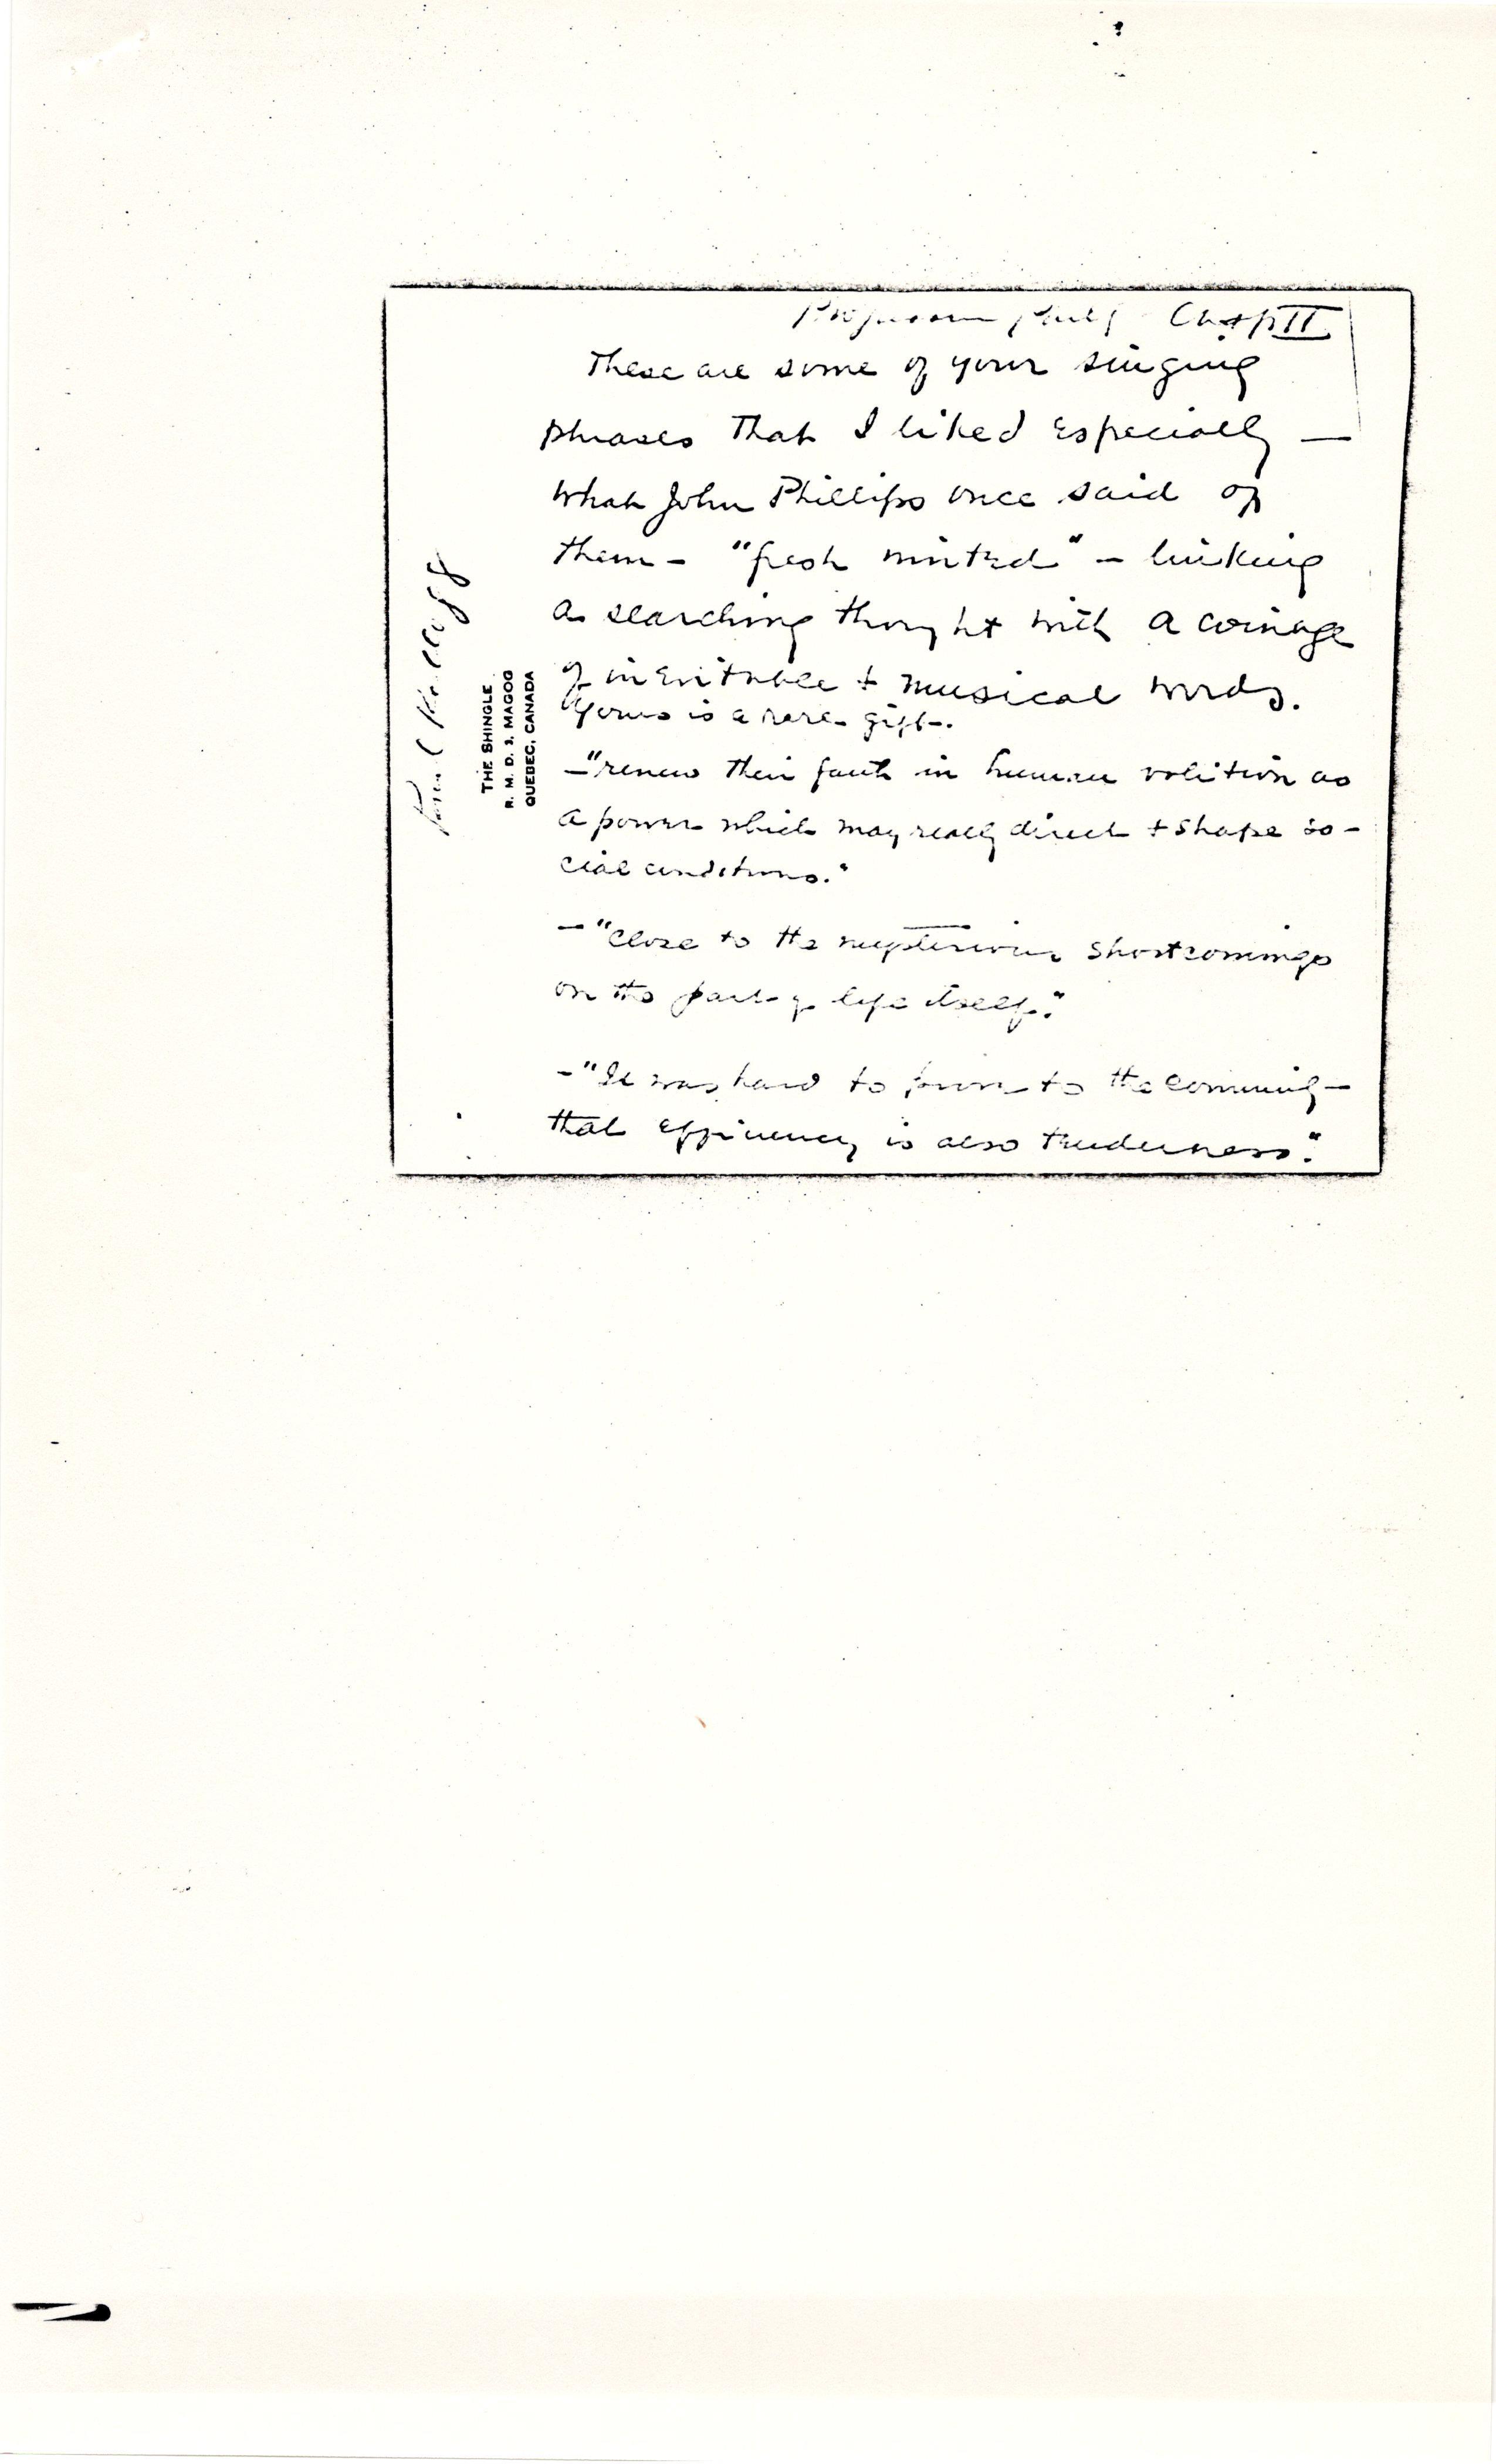 Chap II
These are some of your singing
phrases that I liked especially —
What John Phillips once said of
them - "fresh minted" - linking
a searching thought with a coinage
of inevitable + musical words.
Yours is a rare gift.
- "renew their faith in human volition as
a power which may really direct + shape so-
cial conditions."
- "close to the mysterious shortcomings
on the part of life itself."
- "It was hard to prove to the community -
that efficiency is also tenderness."
THE SHINGLE
R. M. D. 2, MAGOG
QUEBEC, CANADA